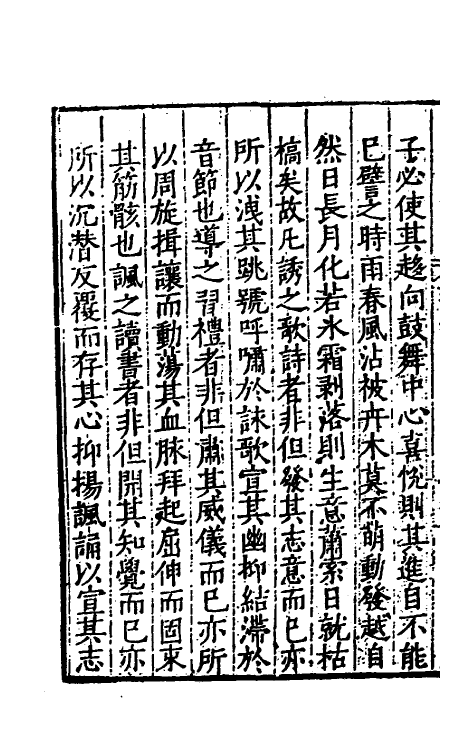 子必使其趍向鼓舞中心喜悅則其進自不能
已譬之時雨春風沾被卉木莫不萌動發越自
然日長月化若氷霜剥落則生意蕭索日就枯
槁矣故凡誘之歌詩者非但發其志意而已亦
所以洩其跳號呼嘯於詠歌宣其幽抑結滯於
音節也導之習禮者非但肅其威儀而已亦所
以周旋揖讓而動蕩其血脉拜起屈伸而固束
其筋骸也諷之讀書者非但開其知覺而已亦
所以沉潜反覆而存其心抑揚諷誦以宣其志